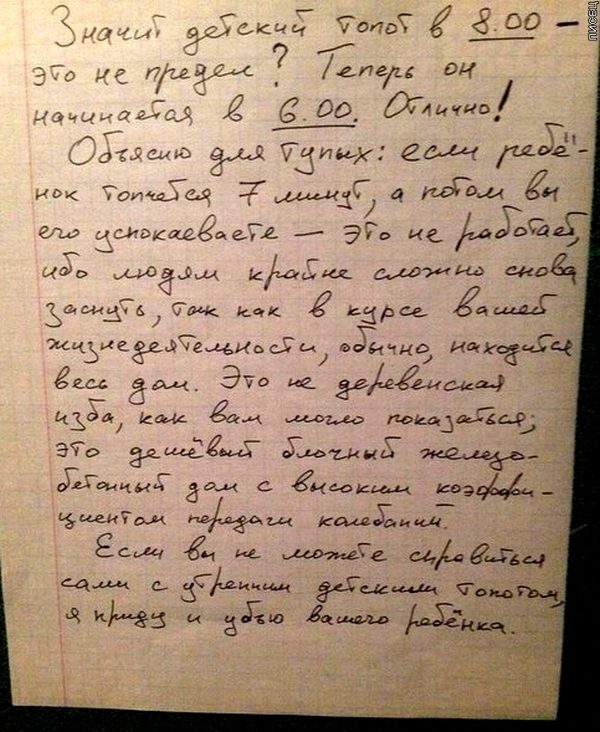 Значит детский топот в 8.00 –
это не предел? Теперь он
начинается в 6.00. Отлично!
Объясню для тупых: если ребё-
нок топчется 7 минут, а потом вы
его успокаеваете – это не работает,
ибо людям крайне сложно снова
заснуть, так как в курсе вашей
жизнедеятельности, обычно, находится
весь дом. Это не деревенская
изба, как вам могло показаться;
это дешёвый блочный железо-
бетонный дом с высоким коэффи-
циентом передачи колебаний.
Если вы не можете справиться
сами с утренним детским топотом,
я приду и убью вашего ребёнка.
ПИСЕЦ